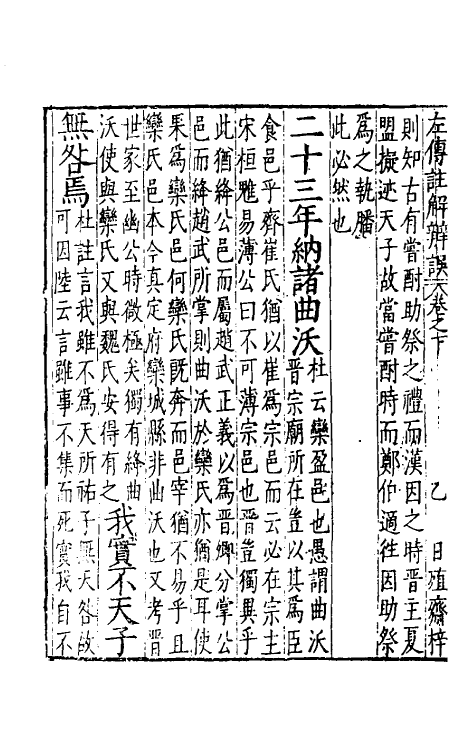 左傳註解辨誤　卷之下　乙　日殖齋梓
則知古有嘗酎助祭之禮而漢因之時晉主夏
盟擬迹天子故當嘗酎時而鄭伯適往因助祭
為之執膰
此必然也
二十三年納諸曲沃杜云欒盈邑也愚謂曲沃
晉宗廟所在豈以其為臣
食邑乎齊崔氏猶以崔為宗邑而云必在宗主
宋桓魋易薄公曰不可薄宗邑也晉豈獨異乎
此猶絳公邑而屬趙武正義以為晉卿分掌公
邑而絳趙武所掌則曲沃於欒氏亦猶是耳使
果為欒氏邑何欒氏既奔而邑宰猶不易乎且
欒氏邑本今真定府欒城縣非曲沃也又考晉
世家至幽公時微極矣獨有絳曲
沃使與欒氏又與魏氏安得有之我實不天子
無咎焉杜註言我雖不為天所祐子無天咎故
可因陸云言雖事不集而死實我自不